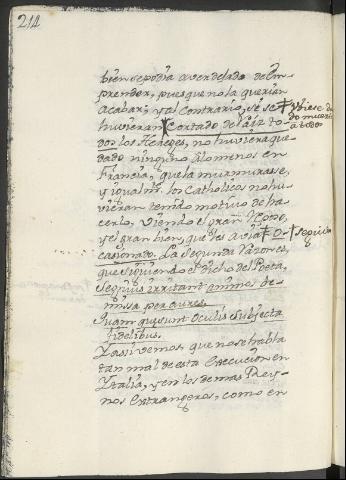 212
bien se podia aver delado de em
prender, pues que no la querian
acabar; y al Contrario, si se ‡ Vbiese da
huvieran ‡ Cortado de raiz to do muerte
dos los Hereges, no huviera que a todo
dado ninguno Alomenos en
Francia, que la murmurase,
y igualmte. los Catholicos no hu
vieran tenido motivo de ha
cerlo, viendo el gran
y el gran bien, que les avia ‡ O ‡ seguido
casionado. La segunda razon es,
que siguiendo el dicho del Poeta,
Segnius irritant animos de
missa per aures.
Quam que sunt oculis subjecta
fidelibus.
Y assi vemos, que no se habla
tan mal de esta execucion en
Ytalia, y en los demas Rey-
nos extrangeros, como en